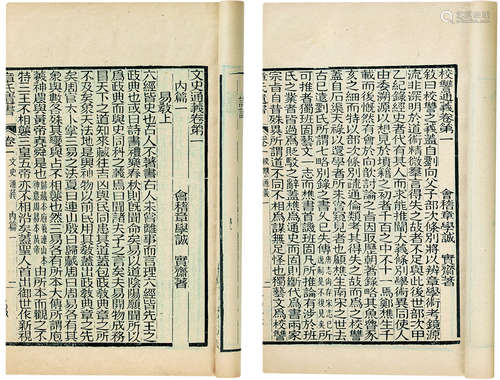 校讎通義卷第一
會稽章學誠 實齋著
敘
校讎之義蓋自劉向父子部次條別將以辨章學術考鏡源
流非深明於道術精微羣言得失之故者不足與此後世部次甲
乙紀錄經史者代有其人而求能推闡大義條別學術異同使人
由委溯源以想見於墳籍之初者千百之中不十一焉鄭樵生千
載而後慨然有會於向歆討論之旨因取歷朝著錄略其魚魯豕
亥之細而特以部次條別疏通倫類考其得失之故而為之校讎
蓋自石渠天祿以還學者所未嘗窺見者也顧樵生南宋之世去
古已遠劉氏所謂七略別錄之書久已失傳唐志尚在宋志已
可推者獨班固藝文一志而樵書首譏班固凡所推論有涉於班
氏之業者皆過為貶駁之辭蓋樵為通史而固則斷代為書兩家
宗旨自昔殊異所謂道不同不相為謀無足怪也獨藝文為校讎
文史通義卷第一
會稽章學誠 實齋著
內篇一
易教上
六經皆史也古人不著書古人未嘗離事而言理六經皆先王之
政典也或曰詩書禮樂春秋則既聞命矣易以道陰陽願聞所以
為政典而與史同科之義焉曰聞諸夫子之言矣夫易開物成務
冒天下之道知來藏往吉凶與民同患其道蓋包政教典章之所
不及矣象天法地是興神物以前民用其教蓋出政教典章之先
矣周官太卜掌三易之法夏曰連山殷曰歸藏周曰周易各有其
象與數各殊其變與占不相襲也然三易各有所本大傳所謂庖
羲神農與黃帝堯舜是也由所本而觀之不
特三王不相襲三皇五帝亦不相沿矣蓋聖人首出御世作新視
章氏遺書 卷一 文史通義 內篇一